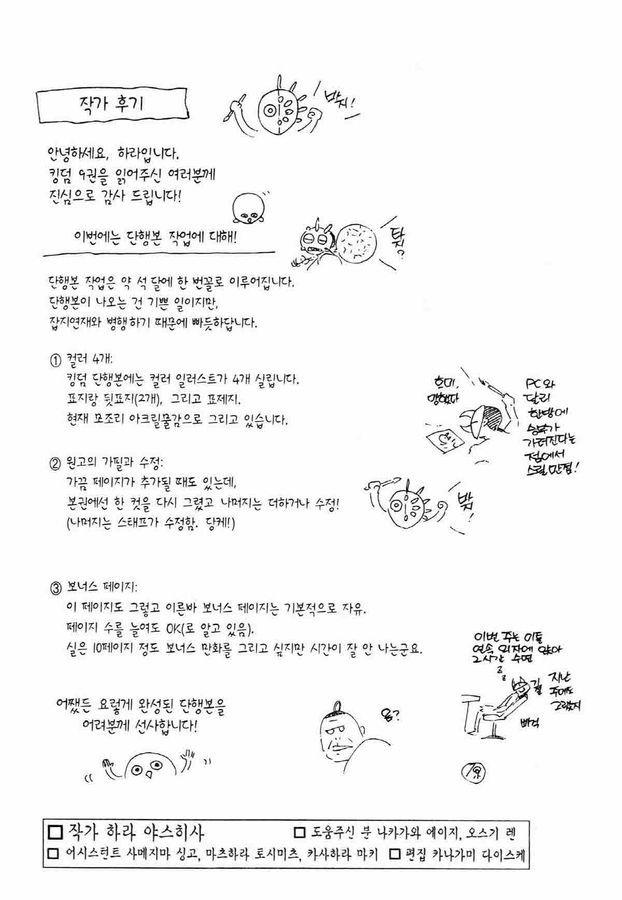 작가 후기
안녕하세요, 하라입니다.
킹덤 9권을 읽어주신 여러분께
진심으로 감사 드립니다!
이번에는 단행본 작업에 대해!
단행본 작업은 약 석 달에 한 번꼴로 이루어집니다.
단행본이 나오는 건 기쁜 일이지만,
잡지연재와 병행하기 때문에 빠듯하답니다.
① 컬러 4개:
킹덤 단행본에는 컬러 일러스트가 4개 실립니다.
표지랑 뒷표지(2개), 그리고 표제지.
현재 모조리 아크릴물감으로 그리고 있습니다.
PC와
달리
한방에
승부가
가려진다는
점에서
스릴만점!
② 원고의 가필과 수정:
가끔 페이지가 추가될 때도 있는데,
본권에선 한 컷을 다시 그렸고 나머지는 더하거나 수정!
(나머지는 스태프가 수정함. 당케!)
③ 보너스 페이지:
이 페이지도 그렇고 이른바 보너스 페이지는 기본적으로 자유.
페이지 수를 늘여도 OK(로 알고 있음).
실은 10페이지 정도 보너스 만화를 그리고 싶지만 시간이 잘 안 나는군요.
이번 주는 이틀
연속 의자에 앉아
2시간 수면
지난
주에도
그랬지
어쨌든 요렇게 완성된 단행본을
여려분께 선사합니다!
응?
작가 하라 야스히사
도움주신 분 나카가와 에이지, 오스기 렌
어시스턴트 사메지마 싱고, 마츠하라 토시미츠, 카사하라 마키
편집 카나가미 다이스케